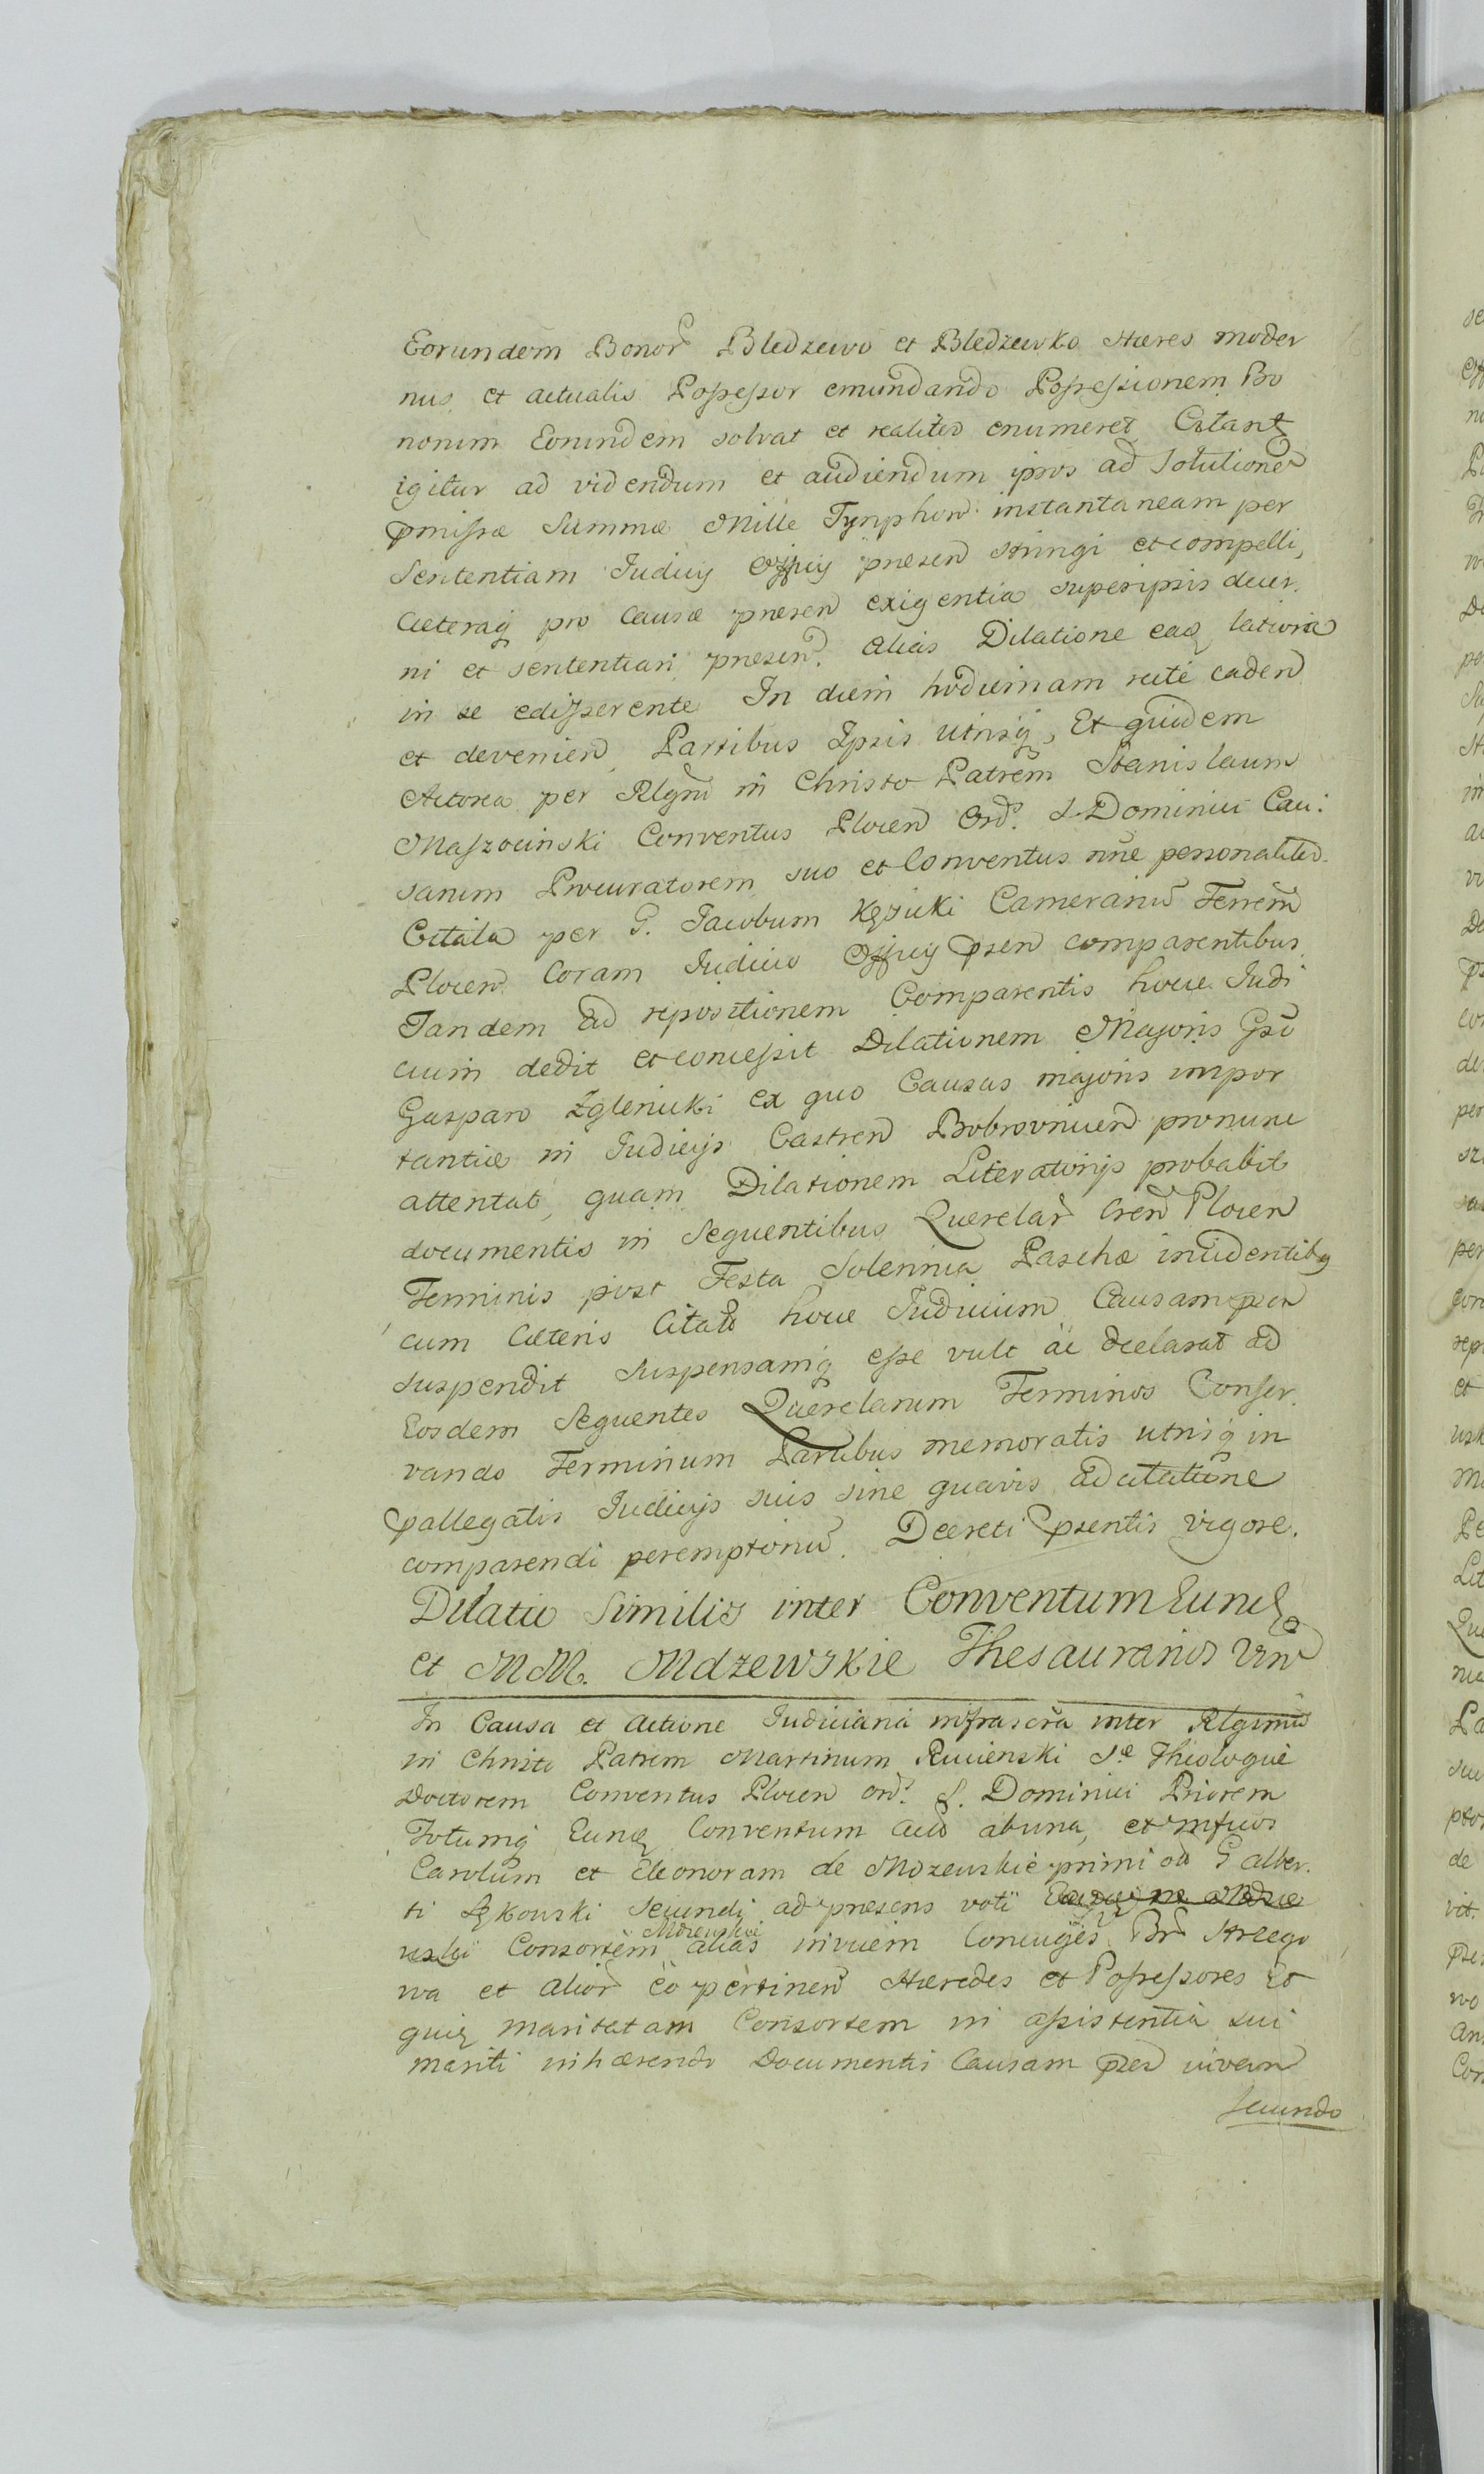 Eorundem Bonor Bledzewo et Bledzewko Hæres moder
nus et actualis Possessor emundando Possessionem Bo
norum Eorundem solvat et realiter enumeret Citant
igitur ad videndum et audiendum ipsos ad Solutionem
pmissæ Summæ Mille Tynphon instantaneam per
Sententiam Judicij Officij præsen stringi et compelli,
Cæteraq pro Causæ præsen exigentia superipsis decer.
ni et sententiari præsen. alias Dilatione eaq latiora
in se edisserente In diem hodiernam recte caden
et devenien Partibus Ipsis utrisq, Et quidem
Actorea per Rlgnu in Christo Patrem Stanislaum
Maszocinski Conventus Plocen Ord. S Dominici Cau:
sarum Procuratorem suo et Conventus nne personaliter.
Citata per G. Jacobum Kęsicki Camerariu Terrem
Plocen Coram Judicio Officij psen comparentibus
Tandem ad repositionem Comparentis hocce Judi
cium dedit et concessit Dilationem Majoris Gso
Gasparo Zglenicki ex quo Causas majoris impor
tantiæ in Judicijs Castren Bobrovnicen pronunc
attentat, quam Dilationem Literatorijs probabit
documentis in Sequentibus Querelar Cren Plocen
Terminis post Festa Solennia Paschæ incidentibq
cum Cæteris Citato hocce Judicium Causam psen
suspendit Suspensamq esse vult ac declarat ad
Eosdem Sequentes Querelarum Terminos Conser.
vando Terminum Partibus memoratis utrisq in
pallegatis Judicijs suis sine quavis adcitatione
comparendi peremptoriu. Decreti psentis vigore.
Dilatio Similis inter Conventum Eund
et MM. Mdzewskie Thesaurarios Urn
In Causa et Actione Judiciaria infrascra inter Rlgimu
in Christo Patrem Martinum Rucienski Se Theologiæ
Doctorem Conventus Plocen ord. S. Dominici Priorem
Totumq Eund Conventum Act abuna, et mfcos
Carolum et Eleonoram de Mdzewskie primi ol G alber.
ti Łękowski Secundi ad præsens voti
Mdzewskiei
Consortem alias invicem Conjuges Br
wa et alior eo pertinen Hæredes et Possessores Et
quiq maritatam Consortem in assistentia sui
mariti inhærendo Documentis Causam psen
secundo